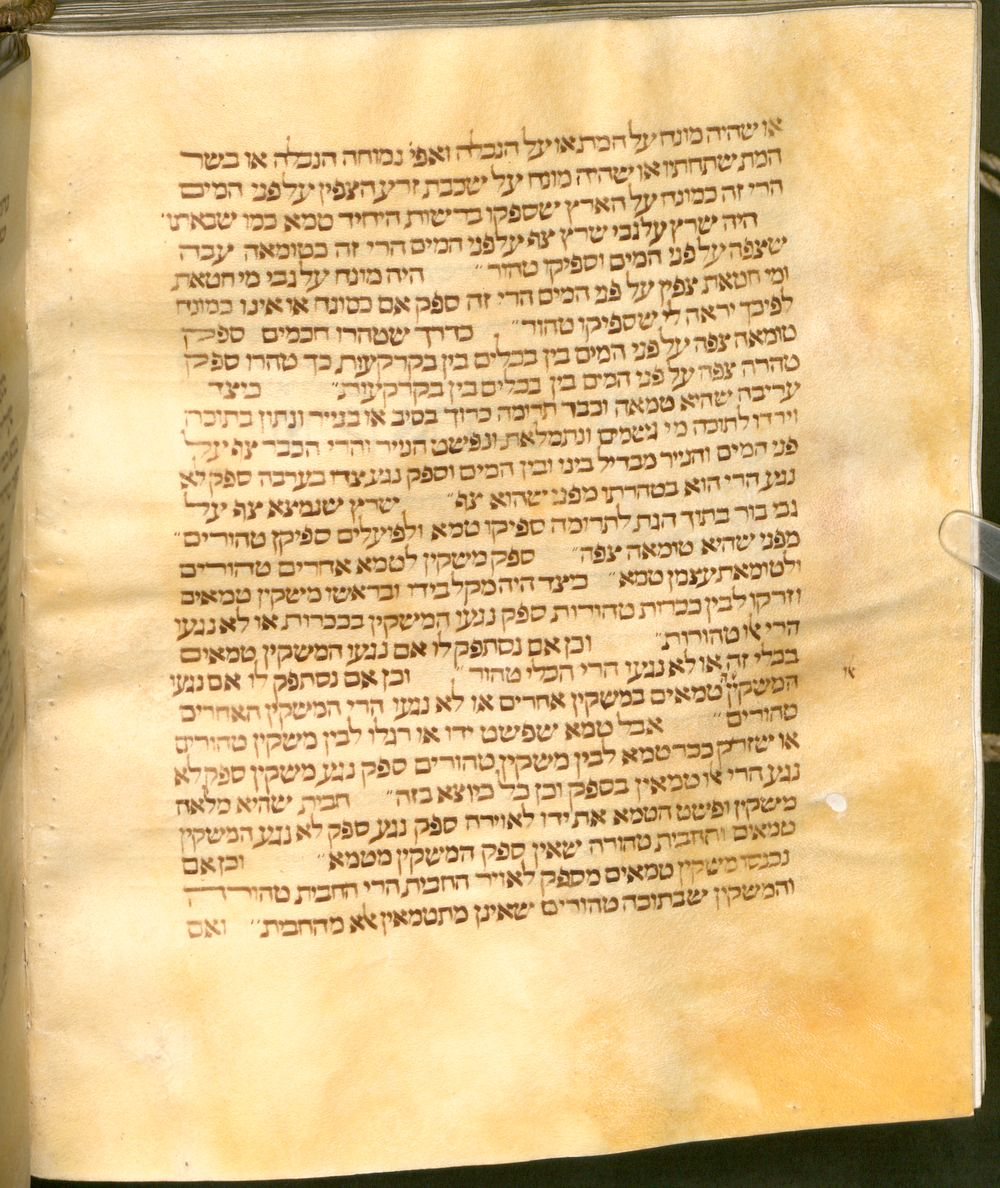 או שהיה מונח על המת או על הנבלה ואפי׳ נמוחה הנבלה או בשר
המת שתחתיו או שהיה מונח על שכבת זרע הצפין על פני המים
הרי זה כמונח על הארץ שספקו ברשות היחיד טמא כמו שבארנו
היה שרץ על גבי שרץ צף על פני המים הרי זה כטומאה עבה
שצפה על פני המים וספיקו טהור״ היה מונח על גבי מי חטאת
ומי חטאת צפין על פני המים הרי זה ספק אם כמונח או אינו כמונח
לפיכך יראה לי שספיקו טהור״ כדרך שטהרו חכמים ספק
טומאה צפה על פני המים בין בכלים בין בקרקעות כך טהרו ספק
טהרה צפה על פני המים בין בכלים בין בקרקעות״ כיצד
עריבה שהיא טמאה וככר תרומה כרוך בסיב או בנייר ונתון בתוכה
וירדו לתוכה מי גשמים ונתמלאת ונפשט הנייר והרי הככר צף על
פני המים והנייר מבדיל בינו ובין המים וספק נגע צדו בערבה ספק לא
נגע הרי הוא בטהרתו מפני שהוא צף״ שרץ שנמצא צף על
גבי בור בתוך הגת לתרומה ספיקו טמא ולפועלים ספיקן טהורים״
מפני שהיא טומאה צפה״ ספק משקין לטמא אחרים טהורים
ולטומאת עצמן טמא״ כיצד היה מקל בידו ובראשו משקין טמאים
וזרקו לבין ככרות טהורות ספק נגעו המשקין בככרות או לא נגעו
הרי אלו טהורות״ וכן אם נסתפק לו אם נגעו המשקין טמאים
בכלי זה או לא נגעו הרי הכלי טהור״ וכן אם נסתפק לו אם נגעו
המשקין טמאים במשקין אחרים או לא נגעו הרי המשקין האחרים
טהורים״ אבל טמא שפשט ידו או רגלו לבין משקין טהורים
או שזרק ככר טמא לבין משקין טהורים ספק נגע משקין ספק לא
נגע הרי אלו טמאין בספק וכן כל כיוצא בזה״ חבית שהיא מלאה
משקין ופישט הטמא את ידו לאוירה ספק נגע ספק לא נגע המשקין
טמאים והחבית טהורה שאין ספק המשקין מטמא״ וכן אם
נכנסו משקין טמאים מספק לאויר החבית הרי החבית טהורה
והמשקין שבתוכה טהורים שאינן מתטמאין אלא מהחבית״ ואם